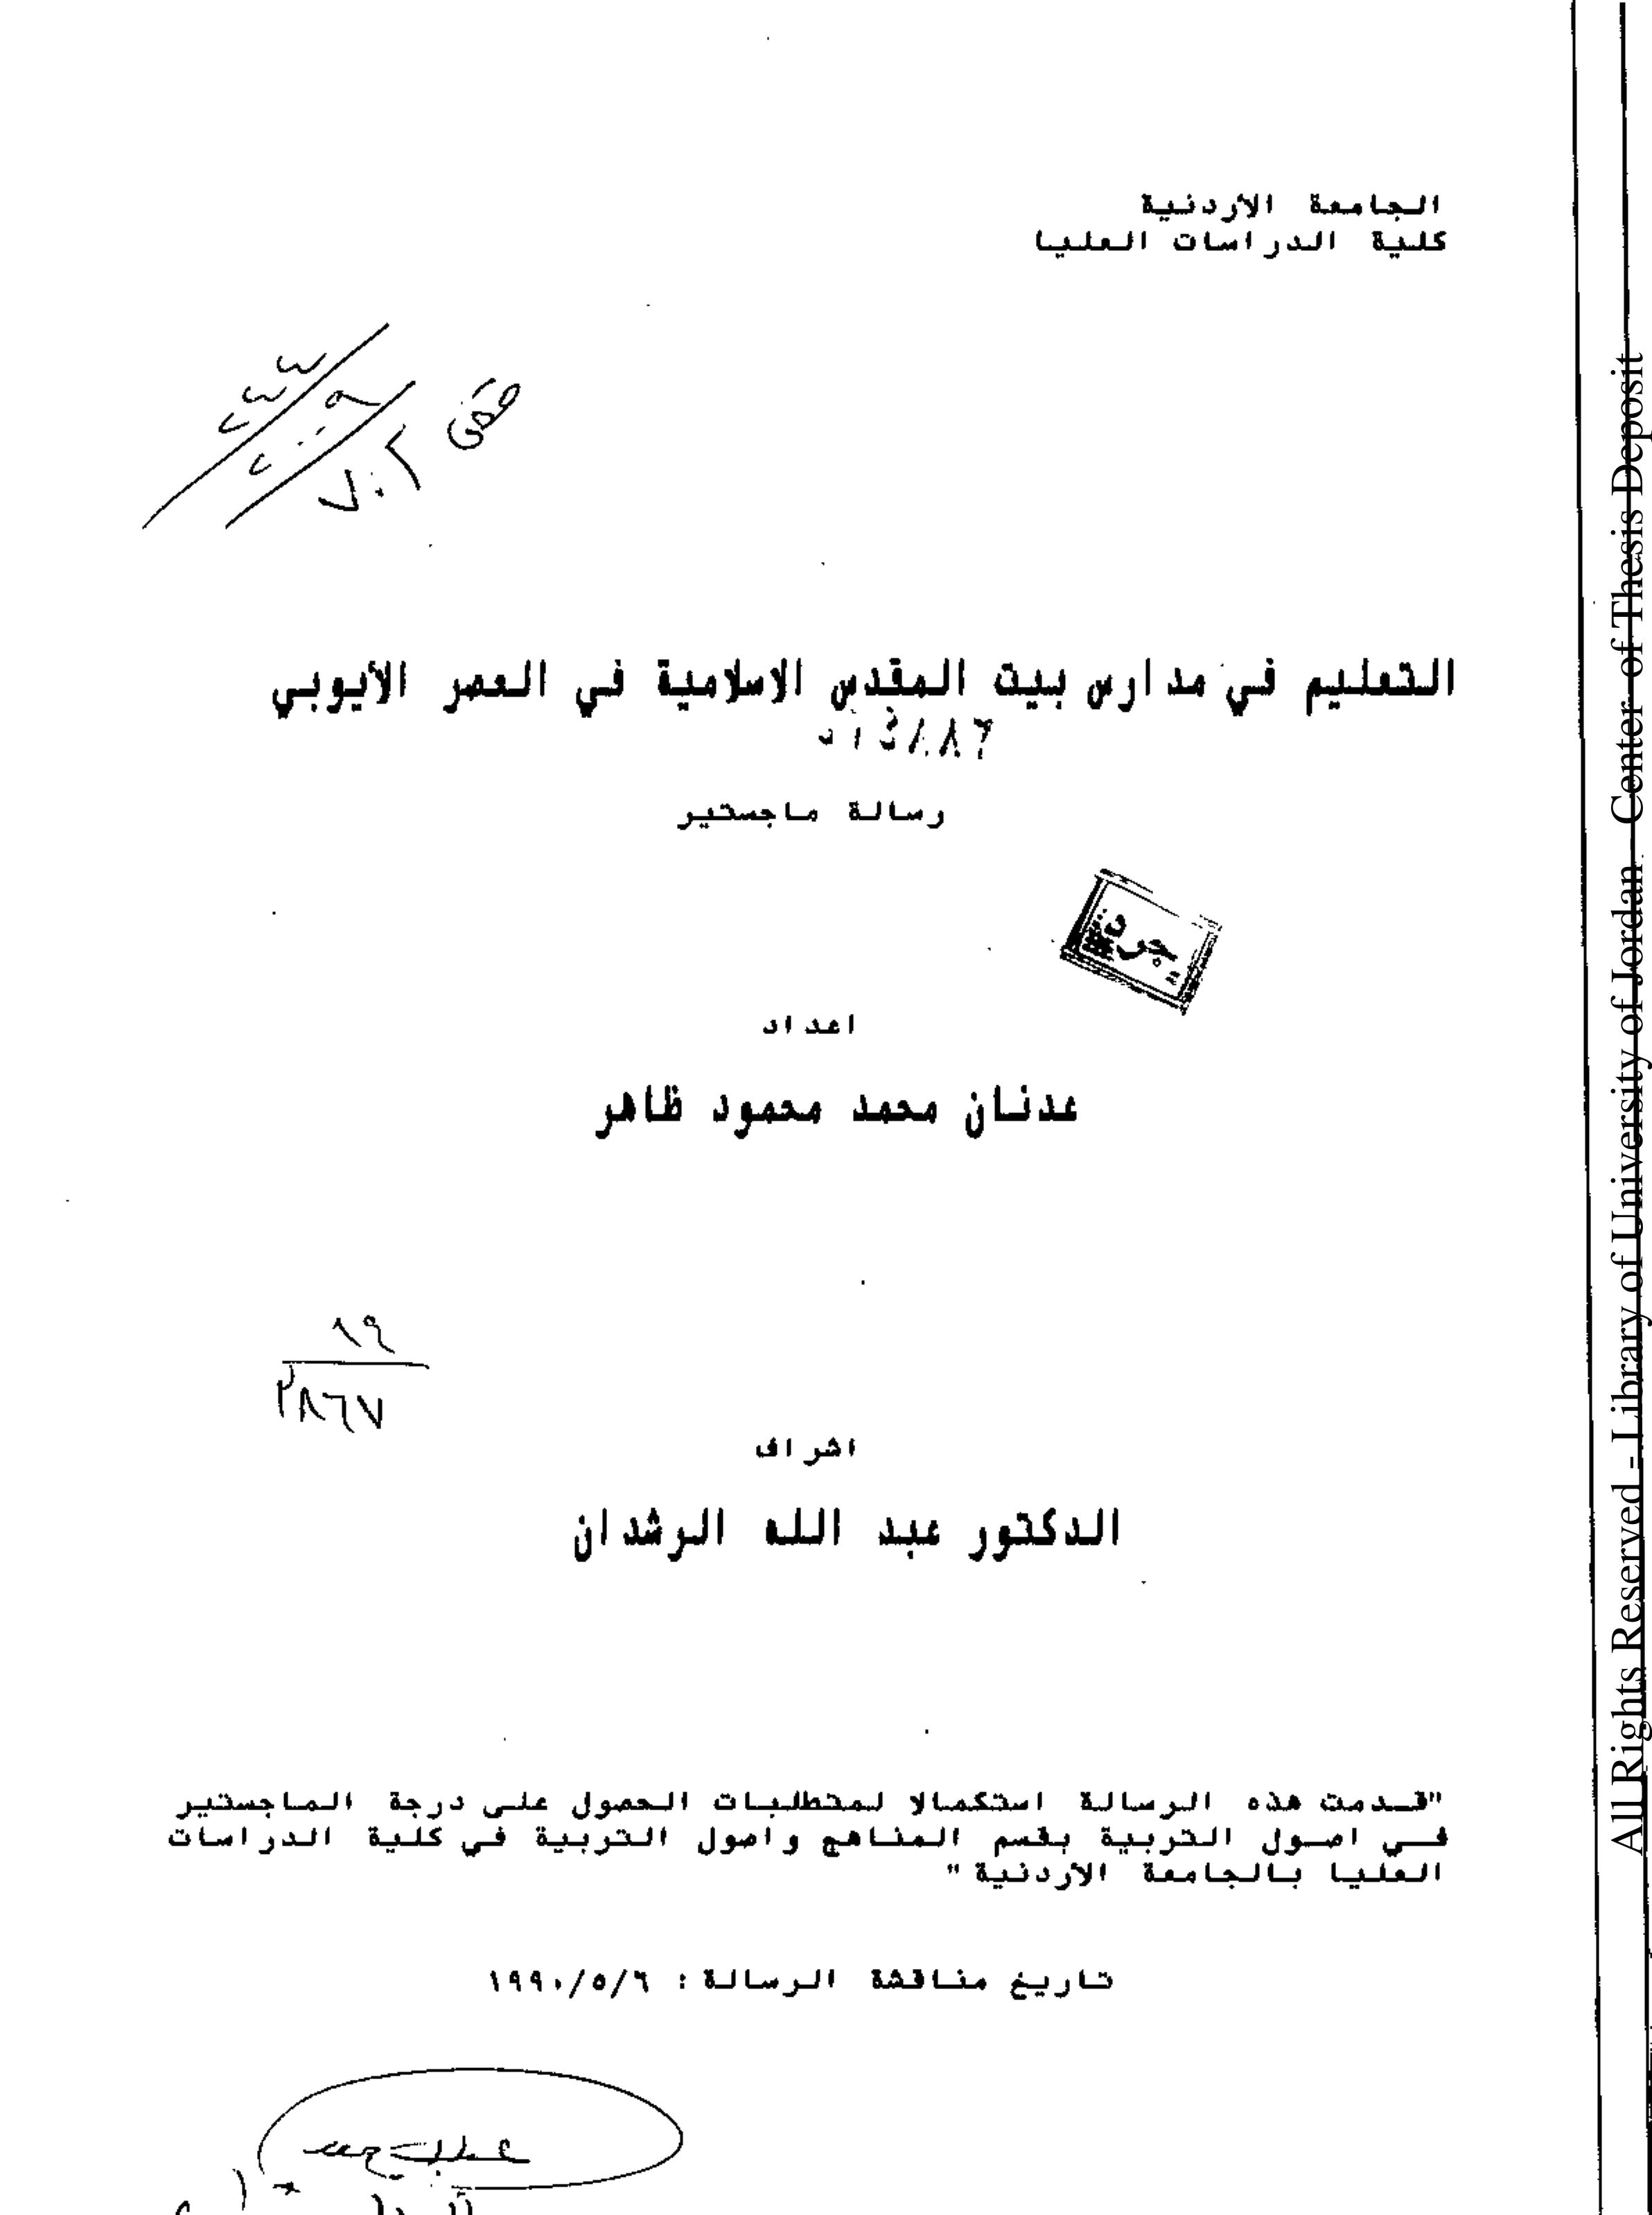 الجامعة الأردنية
كلية الدراسات العليا
التعليم في مدارس بيت المقدس الاسلامية في العصر الأيوبي
رسالة ماجستير
جرد
اعداد
عدنان محمد محمود ظاهر
١٩
٢٨٦٧
اشراف
الدكتور عبد الله الرشدان
"قدمت هذه الرسالة استكمالا لمتطلبات الحصول على درجة الماجستير
في اصول التربية بقسم المناهج واصول التربية في كلية الدراسات
العليا بالجامعة الأردنية"
تاريخ مناقشة الرسالة : ١٩٩٠/٥/٦
All Rights Reserved - Library of University of Jordan - Center of Thesis Deposit